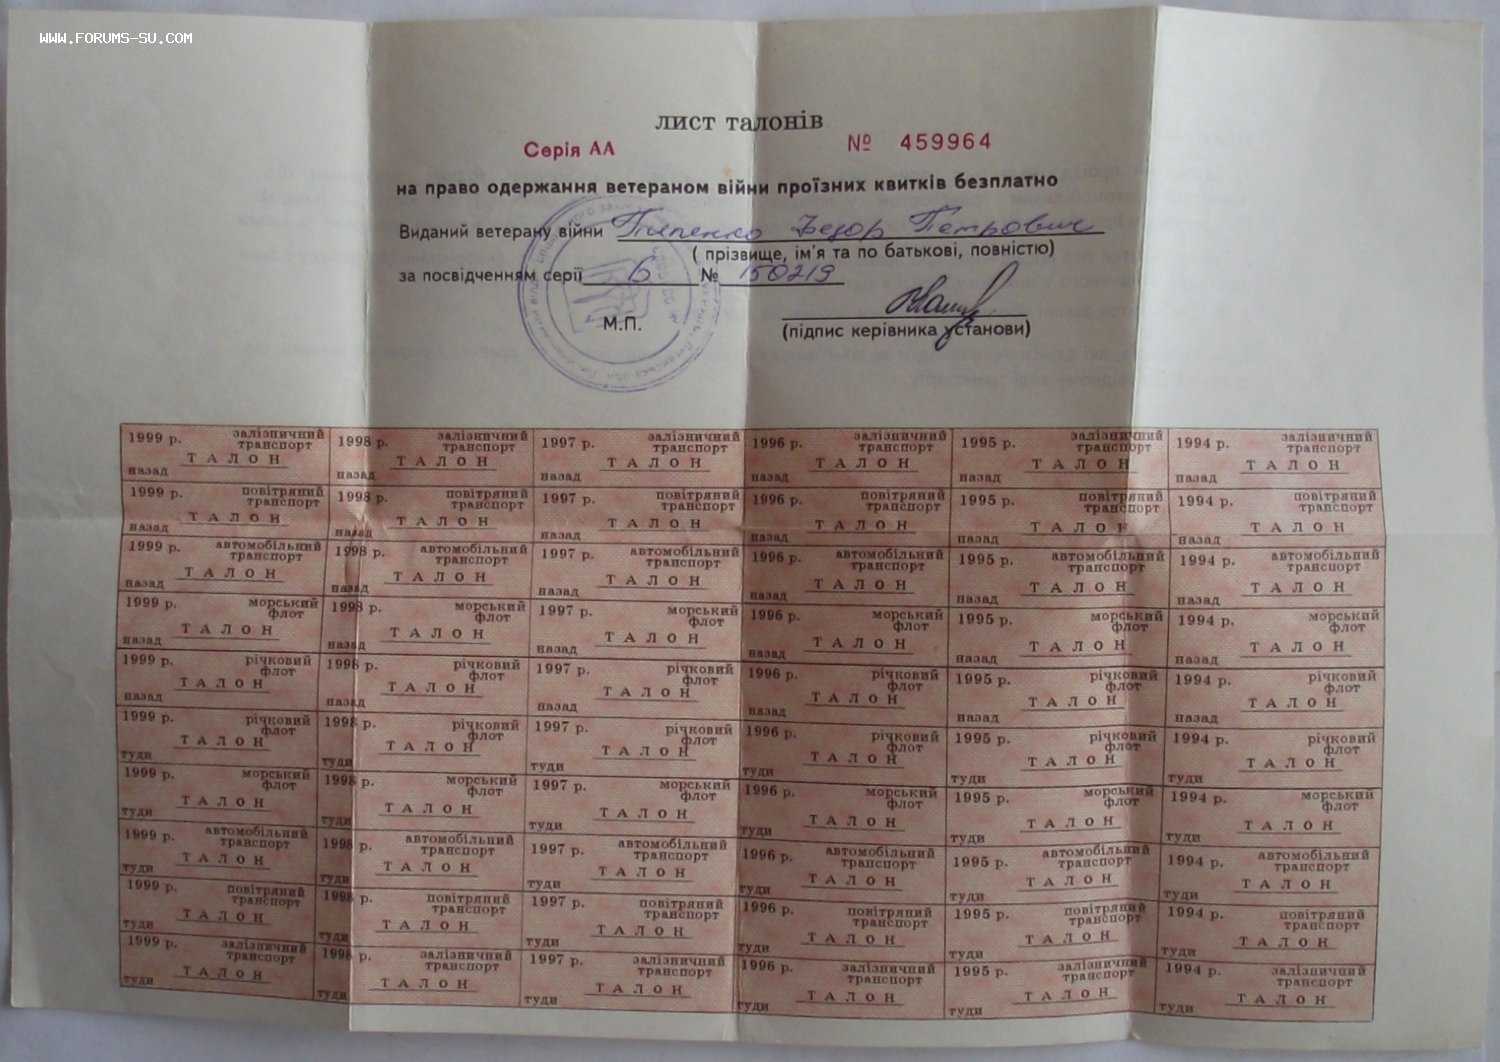 WWW.FORUMS-SU.COM
лист талонів
Серія АА № 459964
на право одержання ветераном війни проїзних квитків безплатно
Виданий ветерану війни Пипенко Федор Петрович
( прізвище, ім'я та по батькові, повністю)
за посвідченням серії Б № 150219
М.П.
(підпис керівника установи)
1999 р. залізничний транспорт ТАЛОН назад 1998 р. залізничний транспорт ТАЛОН назад 1997 р. залізничний транспорт ТАЛОН назад 1996 р. залізничний транспорт ТАЛОН назад 1995 р. залізничний транспорт ТАЛОН назад 1994 р. залізничний транспорт ТАЛОН назад
1999 р. повітряний транспорт ТАЛОН назад 1998 р. повітряний транспорт ТАЛОН назад 1997 р. повітряний транспорт ТАЛОН назад 1996 р. повітряний транспорт ТАЛОН назад 1995 р. повітряний транспорт ТАЛОН назад 1994 р. повітряний транспорт ТАЛОН назад
1999 р. автомобільний транспорт ТАЛОН назад 1998 р. автомобільний транспорт ТАЛОН назад 1997 р. автомобільний транспорт ТАЛОН назад 1996 р. автомобільний транспорт ТАЛОН назад 1995 р. автомобільний транспорт ТАЛОН назад 1994 р. автомобільний транспорт ТАЛОН назад
1999 р. морський флот ТАЛОН назад 1998 р. морський флот ТАЛОН назад 1997 р. морський флот ТАЛОН назад 1996 р. морський флот ТАЛОН назад 1995 р. морський флот ТАЛОН назад 1994 р. морський флот ТАЛОН назад
1999 р. річковий флот ТАЛОН назад 1998 р. річковий флот ТАЛОН назад 1997 р. річковий флот ТАЛОН назад 1996 р. річковий флот ТАЛОН назад 1995 р. річковий флот ТАЛОН назад 1994 р. річковий флот ТАЛОН назад
1999 р. річковий флот ТАЛОН туди 1998 р. річковий флот ТАЛОН туди 1997 р. річковий флот ТАЛОН туди 1996 р. річковий флот ТАЛОН туди 1995 р. річковий флот ТАЛОН туди 1994 р. річковий флот ТАЛОН туди
1999 р. морський флот ТАЛОН туди 1998 р. морський флот ТАЛОН туди 1997 р. морський флот ТАЛОН туди 1996 р. морський флот ТАЛОН туди 1995 р. морський флот ТАЛОН туди 1994 р. морський флот ТАЛОН туди
1999 р. автомобільний транспорт ТАЛОН туди 1998 р. автомобільний транспорт ТАЛОН туди 1997 р. автомобільний транспорт ТАЛОН туди 1996 р. автомобільний транспорт ТАЛОН туди 1995 р. автомобільний транспорт ТАЛОН туди 1994 р. автомобільний транспорт ТАЛОН туди
1999 р. повітряний транспорт ТАЛОН туди 1998 р. повітряний транспорт ТАЛОН туди 1997 р. повітряний транспорт ТАЛОН туди 1996 р. повітряний транспорт ТАЛОН туди 1995 р. повітряний транспорт ТАЛОН туди 1994 р. повітряний транспорт ТАЛОН туди
1999 р. залізничний транспорт ТАЛОН туди 1998 р. залізничний транспорт ТАЛОН туди 1997 р. залізничний транспорт ТАЛОН туди 1996 р. залізничний транспорт ТАЛОН туди 1995 р. залізничний транспорт ТАЛОН туди 1994 р. залізничний транспорт ТАЛОН туди